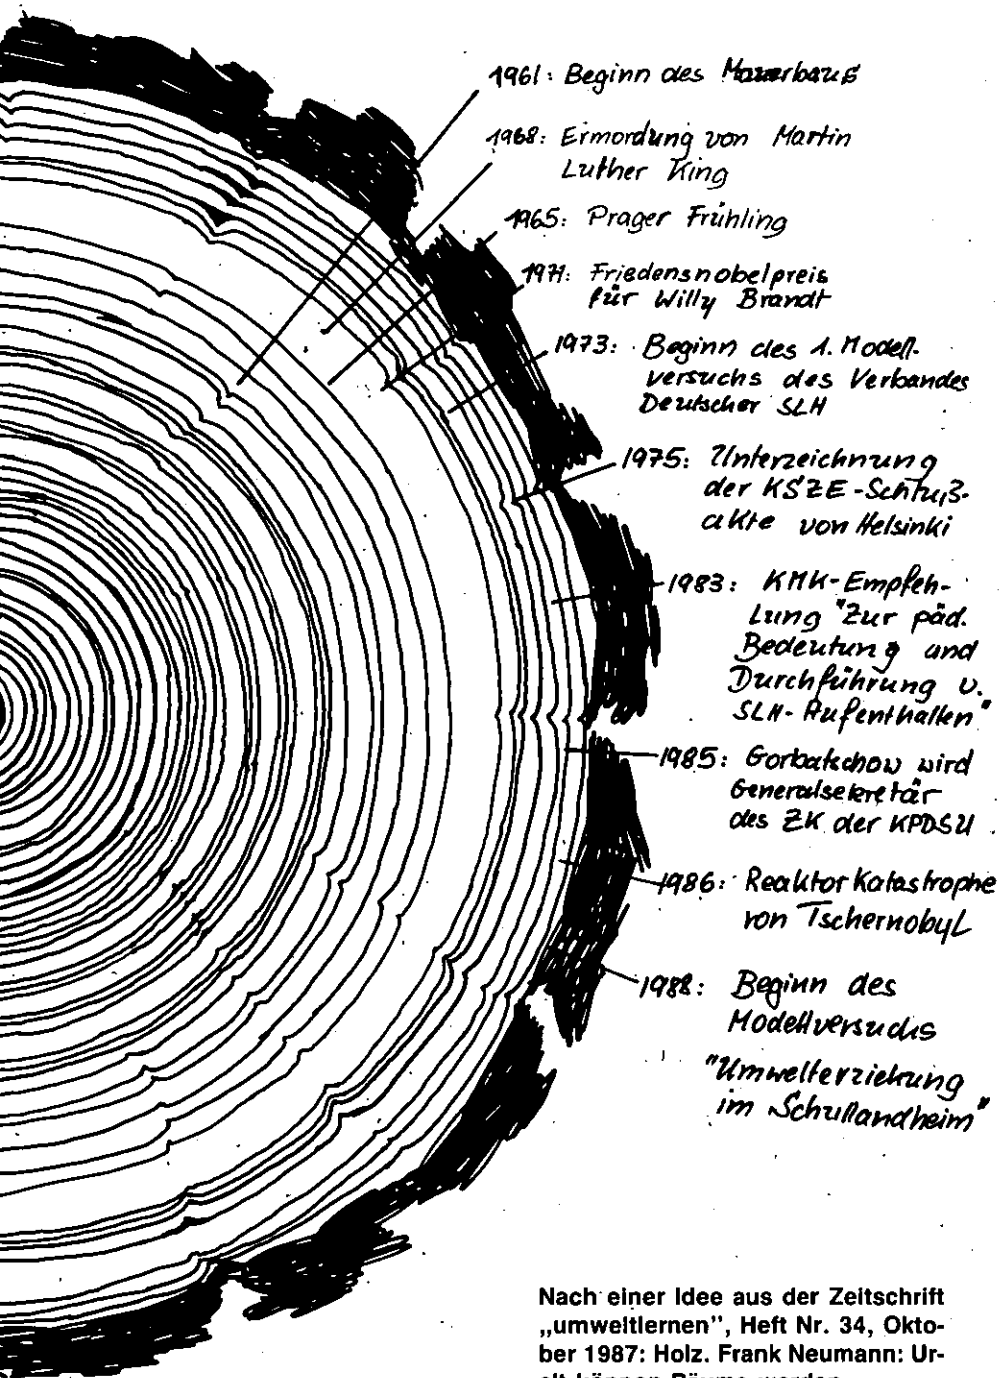 1961: Beginn des Mauerbaus
1968: Ermordung von Martin
Luther King
1965: Prager Frühling
1971: Friedensnobelpreis
für Willy Brandt
1973: Beginn des 1. Modell-
versuchs des Verbandes
Deutscher SLH
1975: Unterzeichnung
der KSZE-Schluß-
akte von Helsinki
1983: KMK-Empfeh-
lung "Zur päd.
Bedeutung und
Durchführung v.
SLH-Aufenthalten"
1985: Gorbatschow wird
Generalsekretär
des ZK der KPDSU
1986: Reaktor Katastrophe
von Tschernobyl
1988: Beginn des
Modellversuchs
"Umwelterziehung
im Schullandheim"
Nach einer Idee aus der Zeitschrift
„umweltlernen”, Heft Nr. 34, Okto-
ber 1987: Holz. Frank Neumann: Ur-
alt können Bäume werden